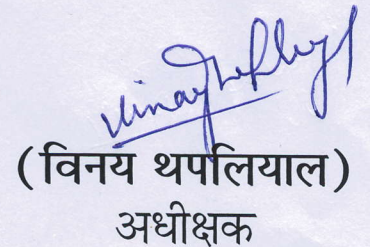 (विनय थपलियाल)
अधीक्षक